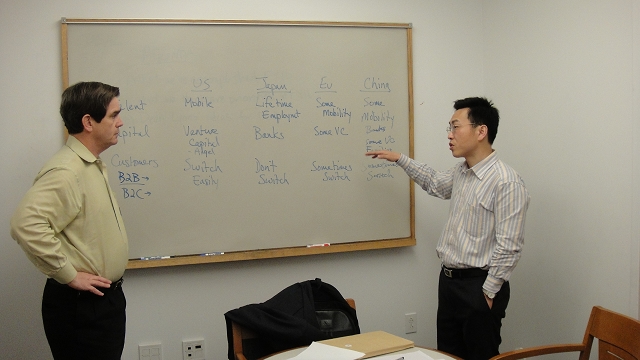 US Japan Eu China
lent Mobile Lifetime Some Some
Employmt Mobility Mobility
apital Venture Banks Some VC Banks
Capital Some VC
Angel
Customers Switch Don't Sometimes
B2B→ Easily Switch Switch Switch
B2C→